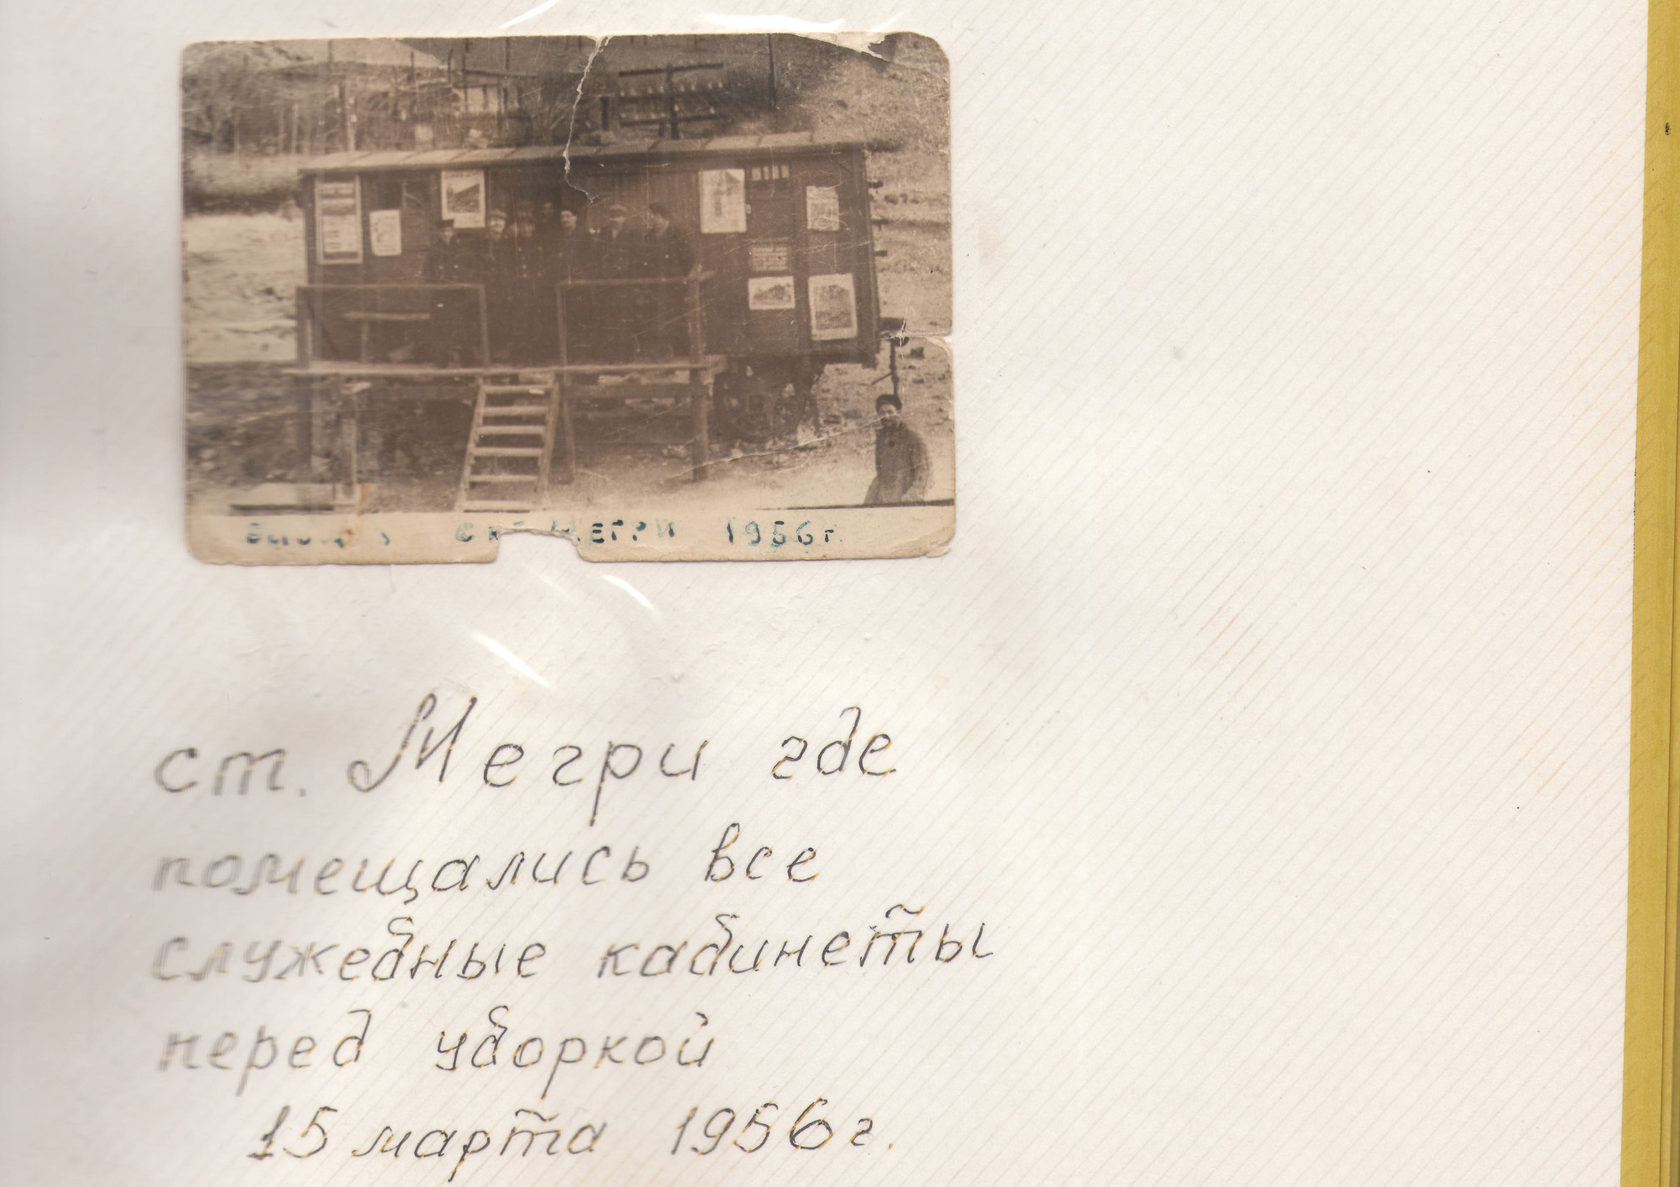 МЕГРИ 1956г.
ст. Мегри где
помещались все
служебные кабинеты
перед уборкой
15 марта 1956г.